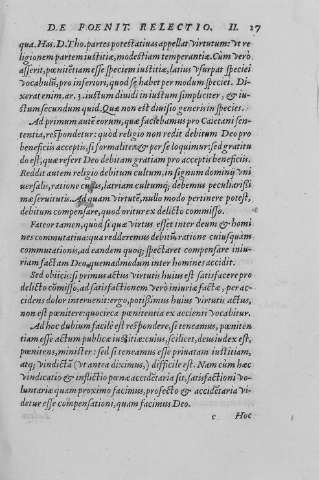 DE POENIT. RELECTIO. II. 17
qua. Has. D. Tho. partes potestatiuas appellat virtutum: vt re
ligionem partem iustitiæ, modestiam temperantiæ. Cum verò
asserit, pœnitētiam esse speciem iustitiæ, latius vsurpat speciei
vocabulū, pro inferiori, quod se habet per modum speciei. Di-
xerat enim. ar. 3. iustum diuidi in iustum simpliciter, & iu-
stum secundum quid. Quæ non est diuisio generis in species.
Ad primum autē eorum, quæ faciebamus pro Caietani sen-
tentia, respōdetur: quòd religio non redit debitum Deo pro
beneficiis acceptis, si formaliter & per se loquimur; sed gratitu
do est, quæ refert Deo debitam gratiam pro acceptis beneficiis.
Reddit autem religio debitum cultum, in signum dominij vni
uersalis, ratione cuius, latriam cultumq; debemus peculiarissi
mæ seruitutis. Ad quam virtutē, nullo modo pertinere potest,
debitum compensare, quod oritur ex delicto commisso.
Fateor tamen, quòd si qua virtus esset inter deum & homi
nes commutatiua: quæ redderemus debitū, ratione cuiusquam
commutationis, ad eandem quoq; spectaret compensare iniu-
riam factam Deo, quemadmodum inter homines accidit.
Sed obiicis: si primus actus virtutis huius est satisfacere pro
delicto cōmisso, ad satisfactionem verò iniuriæ factæ, per ac-
cidens dolor interuenit: ergo, potissimus huius virtutis actus,
non est pœnitere: quocirca pœnitentia ex accienti vocabitur.
Ad hoc dubium facilè est respōdere, si teneamus, pœniten
tiam esse actum publicæ iustitiæ: cuius, scilicet, deus iudex est,
pœnitens, minister: sed si teneamus esse priuatam iustitiam,
atq; vindictā (vt antea diximus,) difficile est. Nam cùm hæc
vindicatio & inflictio pœnæ accidētaria sit, satisfactioni vo-
luntariæ quam proximo facimus, profectò & accidētaria vi-
detur esse compensationi, quam facimus Deo.
c Hoc